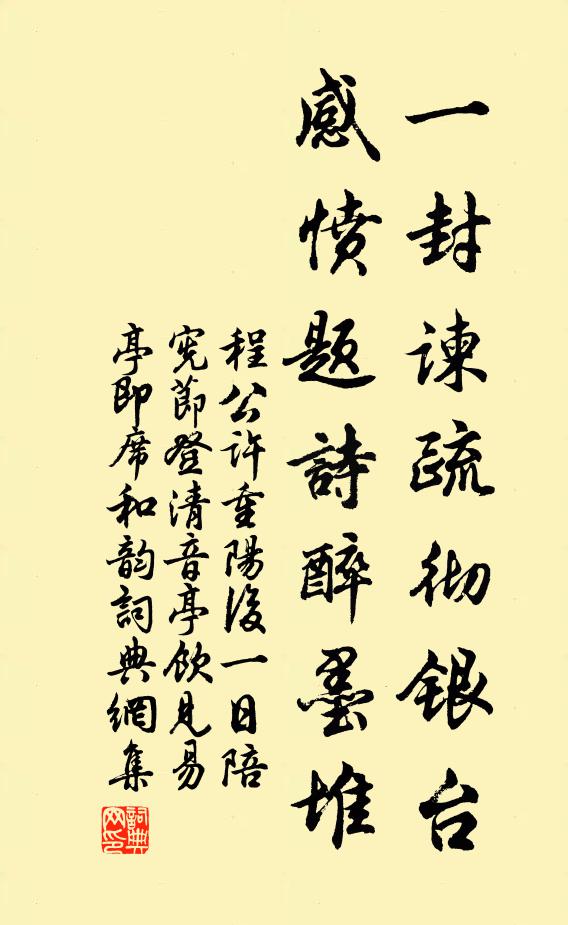 一封谏疏彻银台
感愤题詩醉墨堆
程公许重陽後一日陪
宪節登清音亭飲見易
亭即席和韵詞典網集
詞典网印